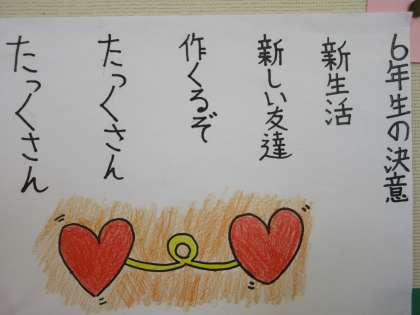 6年生の決意
新生活
新しい友達
作くるぞ
たっくさん
たっくさん